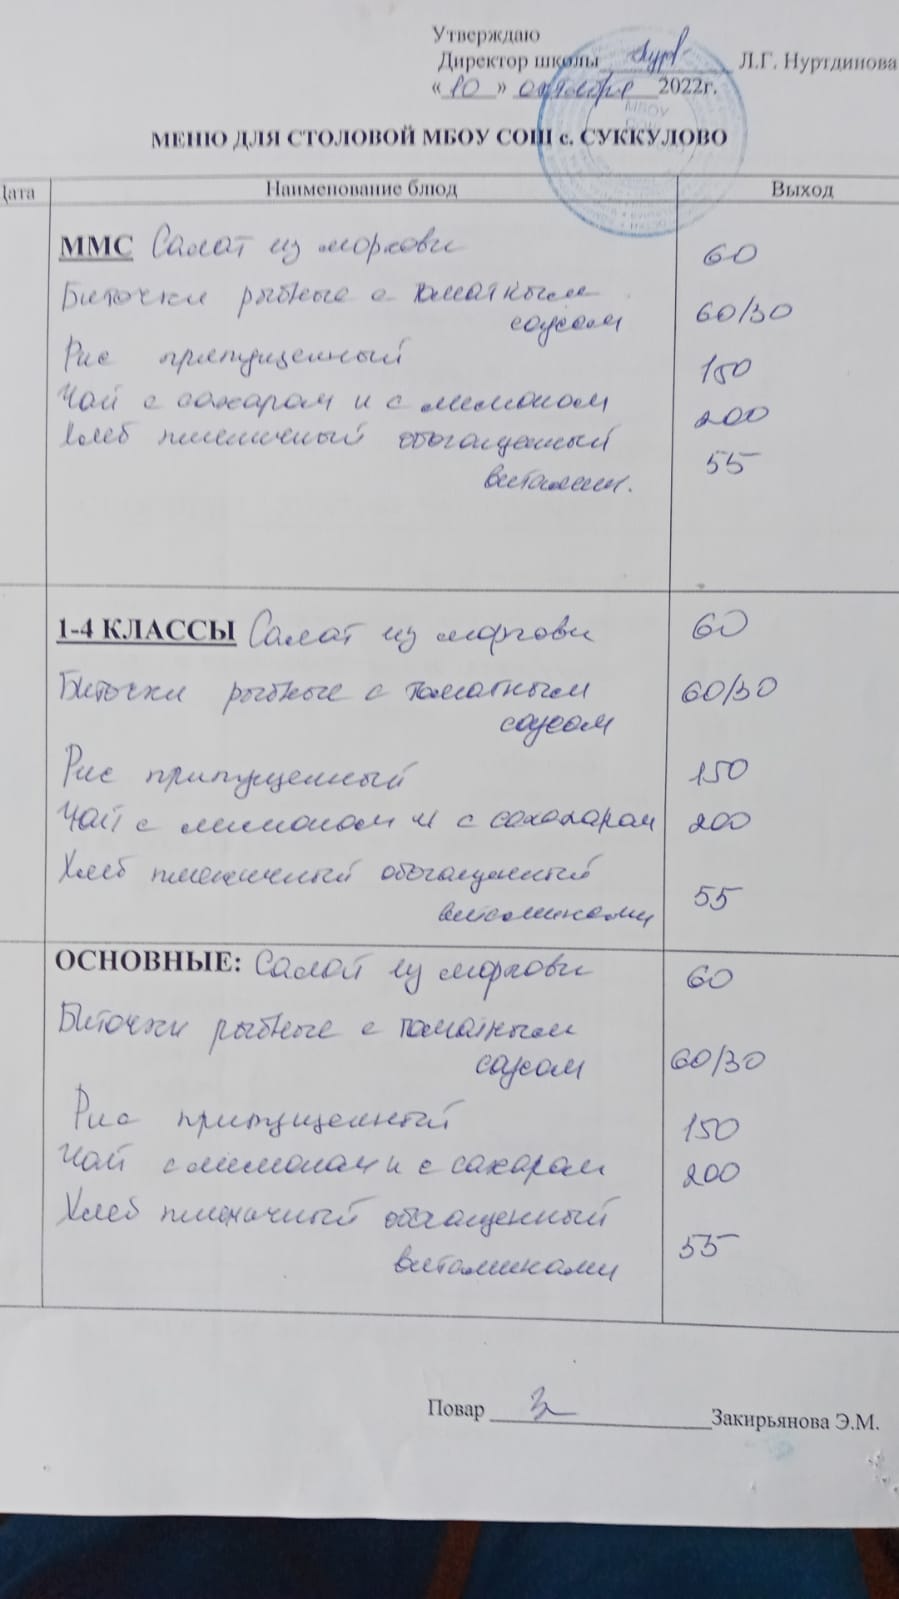 Утверждаю
Директор школы Л.Г. Нуртдинова
«10» октября 2022г.
МБОУ
МЕНЮ ДЛЯ СТОЛОВОЙ МБОУ СОШ с. СУККУЛОВО
Дата Наименование блюд Выход
ММС Салат из моркови 60
Биточки рыбные с томатным
соусом 60/30
Рис припущенный 150
Чай с сахаром и с лимоном 200
Хлеб пшеничный обогащенный 55
витамин.
1-4 КЛАССЫ Салат из моркови 60
Биточки рыбные с томатным 60/30
соусом
Рис припущенный 150
Чай с лимоном и с сахахаром 200
Хлеб пшеничный обогащенный
витаминами 55
ОСНОВНЫЕ: Салат из моркови 60
Биточки рыбные с томатным
соусом 60/30
Рис припущенный 150
Чай с лимоном и с сахаром 200
Хлеб пшеничный обогащенный
витаминами 55
Повар Закирьянова Э.М.